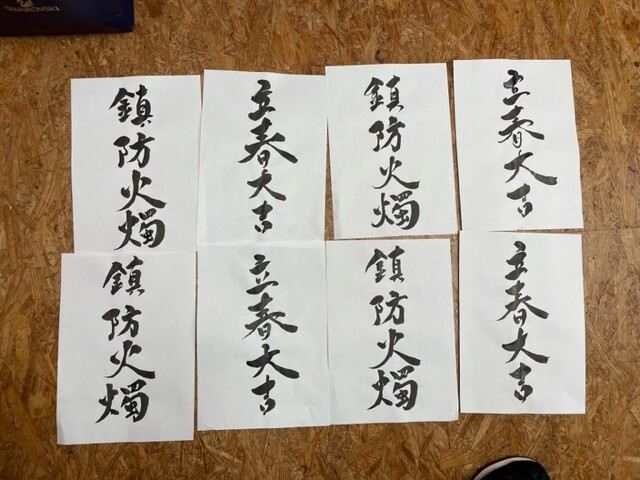 SWAROVSKI
鎮防火燭
立春大吉
鎮防火燭
立春大吉
鎮防火燭
立春大吉
鎮防火燭
立春大吉